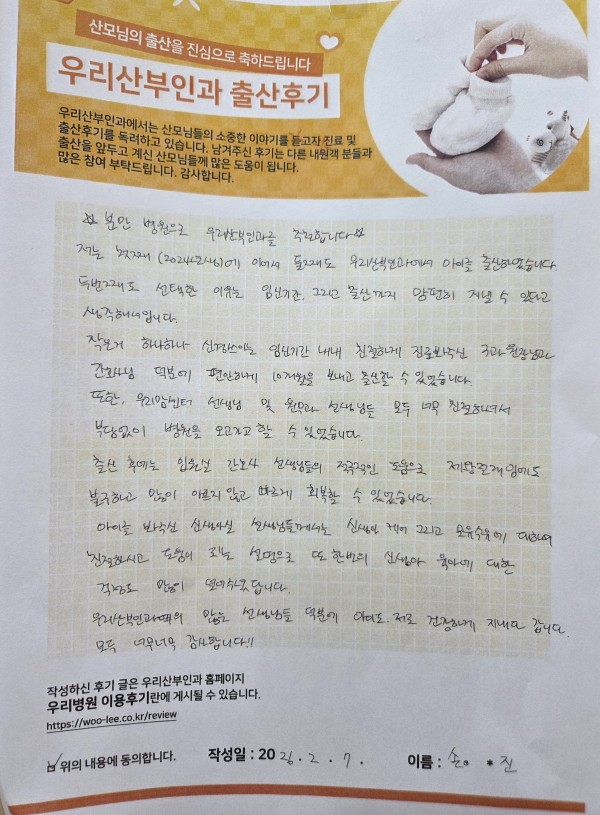 산모님의 출산을 진심으로 축하드립니다
우리산부인과 출산후기
우리산부인과에서는 산모님들의 소중한 이야기를 듣고자 진료 및
출산후기를 독려하고 있습니다. 남겨주신 후기는 다른 내원객 분들과
출산을 앞두고 계신 산모님들께 많은 도움이 됩니다.
많은 참여 부탁드립니다. 감사합니다.
분만 병원으로 우리산부인과를 추천합니다
저는 첫째 (2024년생)에 이어서 둘째도 우리산부인과에서 아이를 출산하였습니다.
두번째도 선택한 이유는 임신기간, 그리고 출산까지 맘편히 지낼 수 있다고
생각해서입니다.
작은거 하나하나 신경쓰이는 임신기간 내내 친절하게 진료봐주신 원장님과
간호사님 덕분에 편안하게 10개월을 보내고 출산할 수 있었습니다.
또한, 우리맘센터 선생님 및 원무과 선생님들 모두 너무 친절하셔서
부담없이 병원을 오고가고 할 수 있었습니다.
출산 후에는 입원실 간호사 선생님들의 적극적인 도움으로 제왕절개임에도
불구하고 많이 아프지 않고 빠르게 회복할 수 있었습니다.
아이를 봐주신 신생아실 선생님들께서는 신생아 케어 그리고 모유수유에 대하여
친절하시고 도움이 되는 설명으로 또 한번의 신생아 육아에 대한
걱정도 많이 덜어주셨답니다.
우리산부인과의 많은 선생님들 덕분에 아이도, 저도 건강하게 지내다 갑니다.
모두 너무너무 감사합니다!!
작성하신 후기 글은 우리산부인과 홈페이지
우리병원 이용후기란에 게시될 수 있습니다.
https://woo-lee.co.kr/review
위의 내용에 동의합니다. 작성일 : 2026. 2. 7. 이름 : 손 * 진